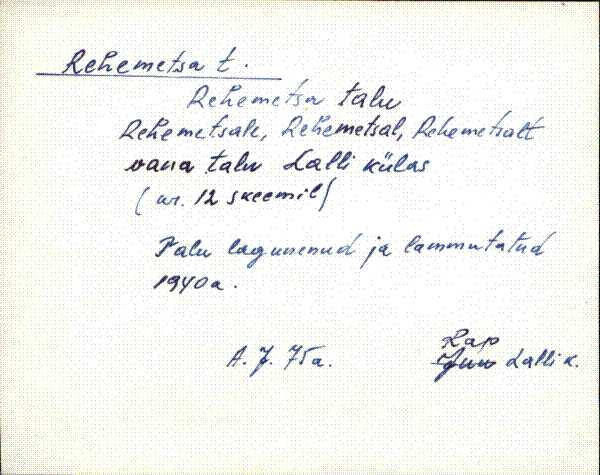 Rehemetsa t.
Rehemetsa talu
Rehemetsale, Rehemetsal, Rehemetsalt
vana talu Lalli külas
(nr. 12 skeemil)
Talu lagunenud ja lammutatud
1940a.
Rap
A. J. 75a. Lalli k.